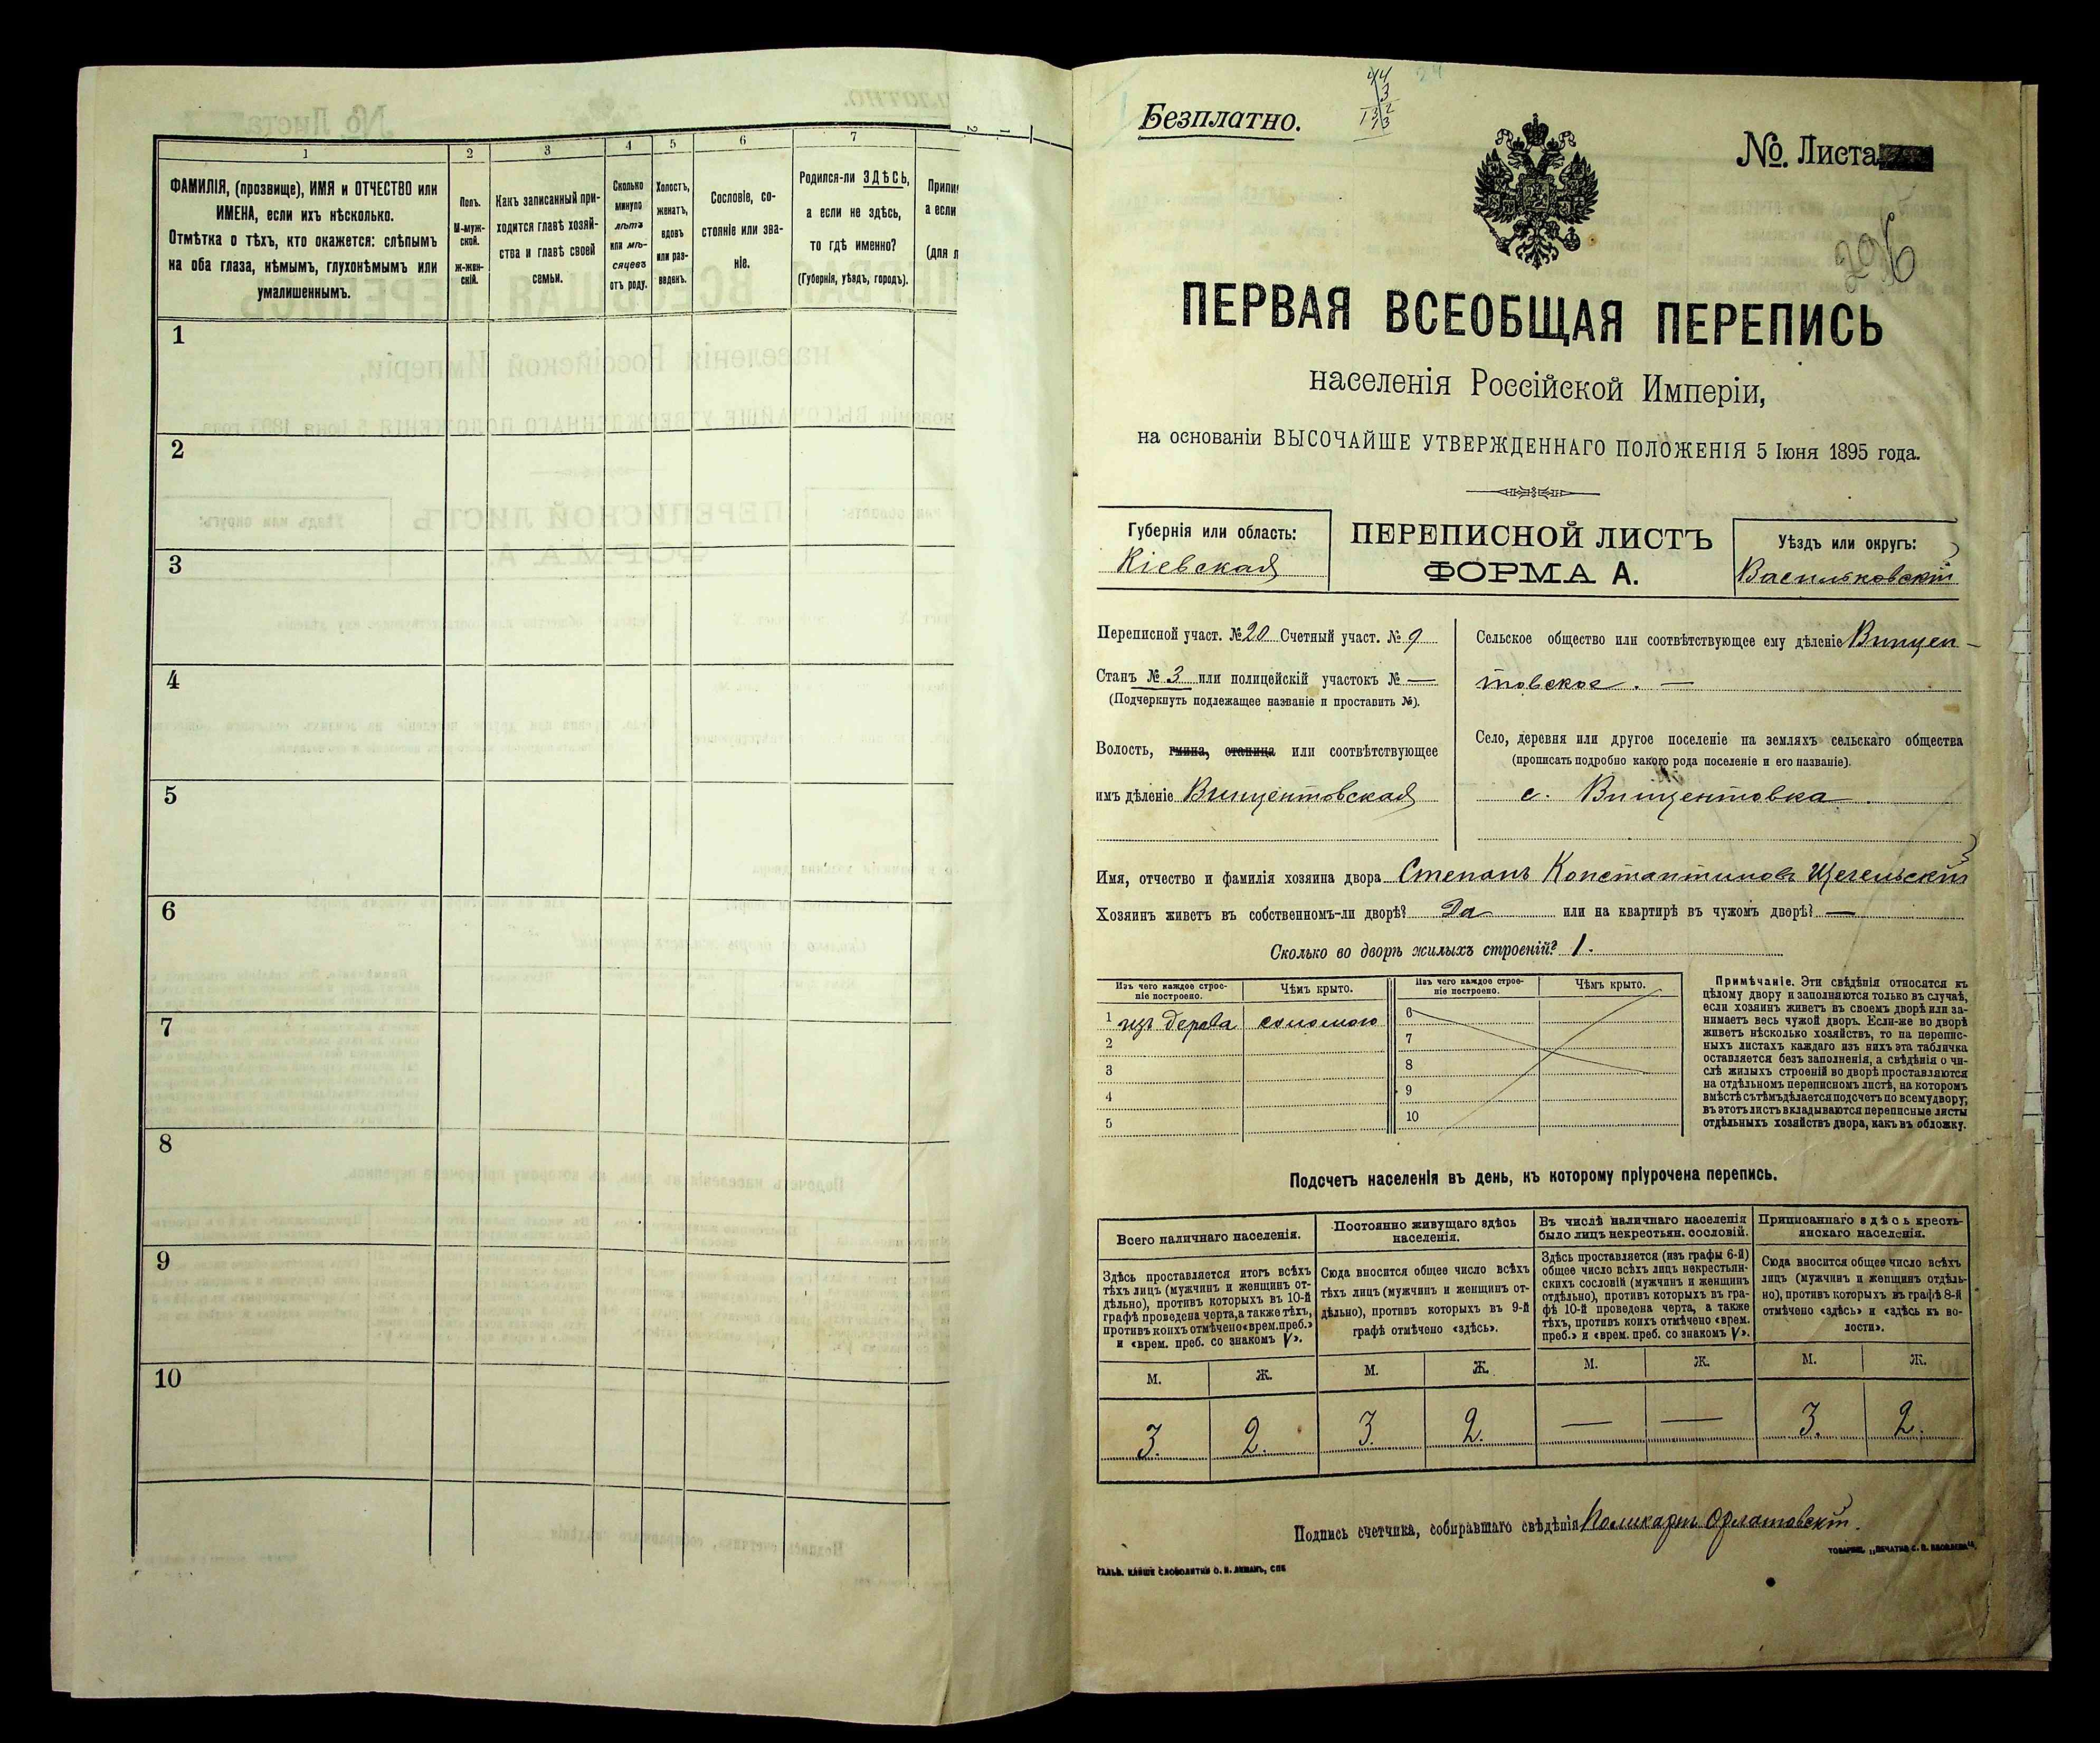 1
2
3
4
5
6
7
ФАМИЛІЯ, (прозвище), ИМЯ и ОТЧЕСТВО или
ИМЕНА, если ихъ нѣсколько.
Отмѣтка о тѣхъ, кто окажется: слѣпымъ
на оба глаза, нѣмымъ, глухонѣмымъ или
умалишеннымъ.
Полъ.
М-муж-
ской.
ж-жен-
скій.
Какъ записанный при-
ходится главѣ хозяй-
ства и главѣ своей
семьи.
Сколько
минуло
лѣтъ
или мѣ-
сяцевъ
отъ роду.
Холостъ,
женатъ,
вдовъ
или раз-
веденъ.
Сословіе, со-
стояніе или зва-
ніе.
Родился-ли ЗДѢСЬ,
а если не здѣсь,
то гдѣ именно?
(Губернія, уѣздъ, городъ).
а если
(для
1
2
3
4
5
6
7
8
9
10
Безплатно.
№. Листа
206
ПЕРВАЯ ВСЕОБЩАЯ ПЕРЕПИСЬ
населенія Россійской Имперіи,
на основаніи ВЫСОЧАЙШЕ УТВЕРЖДЕННАГО ПОЛОЖЕНІЯ 5 Іюня 1895 года.
Губернія или область:
Кіевская
ПЕРЕПИСНОЙ ЛИСТЪ
ФОРМА А.
Уѣздъ или округъ:
Васильковскій
Переписной участ. № 20 Счетный участ. № 9
Станъ № 3 или полицейскій участокъ № —
(Подчеркнуть подлежащее названіе и проставить №).
Волость, гмина, станица или соотвѣтствующее
имъ дѣленіе Винцентовская
Сельское общество или соотвѣтствующее ему дѣленіе Винцен-
товское. —
Село, деревня или другое поселеніе на земляхъ сельскаго общества
(прописать подробно какого рода поселеніе и его названіе).
с. Винцентовка
Имя, отчество и фамилія хозяина двора Степанъ Константиновъ Щегельскій
Хозяинъ живетъ въ собственномъ-ли дворѣ? Да или на квартирѣ въ чужомъ дворѣ? —
Сколько во дворѣ жилыхъ строеній? 1.
Изъ чего каждое строе-
ніе построено.
Чѣмъ крыто.
Изъ чего каждое строе-
ніе построено.
Чѣмъ крыто.
1 изъ дерева соломою
2
3
4
5
6
7
8
9
10
Примѣчаніе. Эти свѣдѣнія относятся къ
цѣлому двору и заполняются только въ случаѣ,
если хозяинъ живетъ въ своемъ дворѣ или за-
нимаетъ весь чужой дворъ. Если-же во дворѣ
живетъ нѣсколько хозяйствъ, то на перепис-
ныхъ листахъ каждаго изъ нихъ эта табличка
оставляется безъ заполненія, а свѣдѣнія о чи-
слѣ жилыхъ строеній во дворѣ проставляются
на отдѣльномъ переписномъ листѣ, на которомъ
вмѣстѣ съ тѣмъ дѣлается подсчетъ по всему двору;
въ этотъ листъ вкладываются переписные листы
отдѣльныхъ хозяйствъ двора, какъ въ обложку.
Подсчетъ населенія въ день, къ которому пріурочена перепись.
Всего наличнаго населенія.
Здѣсь проставляется итогъ всѣхъ
тѣхъ лицъ (мужчинъ и женщинъ от-
дѣльно), противъ которыхъ въ 10-й
графѣ проведена черта, а также тѣхъ,
противъ коихъ отмѣчено «врем. преб.»
и «врем. преб. со знакомъ V».
Постоянно живущаго здѣсь
населенія.
Сюда вносится общее число всѣхъ
тѣхъ лицъ (мужчинъ и женщинъ от-
дѣльно), противъ которыхъ въ 9-й
графѣ отмѣчено «здѣсь».
Въ числѣ наличнаго населенія
было лицъ некрестьян. сословій.
Здѣсь проставляется (изъ графы 6-й)
общее число всѣхъ лицъ некрестьян-
скихъ сословій (мужчинъ и женщинъ
отдѣльно), противъ которыхъ въ гра-
фѣ 10-й проведена черта, а также
тѣхъ, противъ коихъ отмѣчено «врем.
преб.» и «врем. преб. со знакомъ V».
Приписаннаго здѣсь кресть-
янскаго населенія.
Сюда вносится общее число всѣхъ
лицъ (мужчинъ и женщинъ отдѣль-
но), противъ которыхъ въ графѣ 8-й
отмѣчено «здѣсь» и «здѣсь къ во-
лости».
М. Ж. М. Ж. М. Ж. М. Ж.
3. 2. 3. 2. — — 3. 2.
Подпись счетчика, собиравшаго свѣдѣнія Поликарпъ